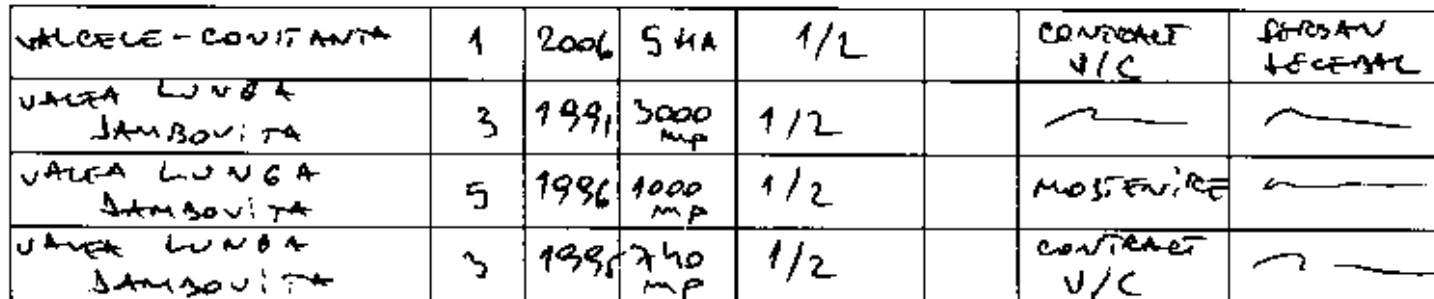 VALCELE - CONSTANTA 1 2006 5 HA 1/2 CONTRACT V/C SERBAN DECEBAL
VALEA LUNGA DAMBOVITA 3 1991 3000 MP 1/2
VALEA LUNGA DAMBOVITA 5 1996 1000 MP 1/2 MOSTENIRE
VALEA LUNGA DAMBOVITA 3 1995 740 MP 1/2 CONTRACT V/C